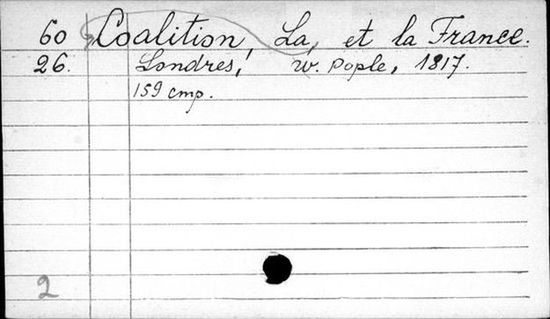 60 Coalition, La, et la France.
26. Londres, W. Pople, 1817.
159 стр.
2